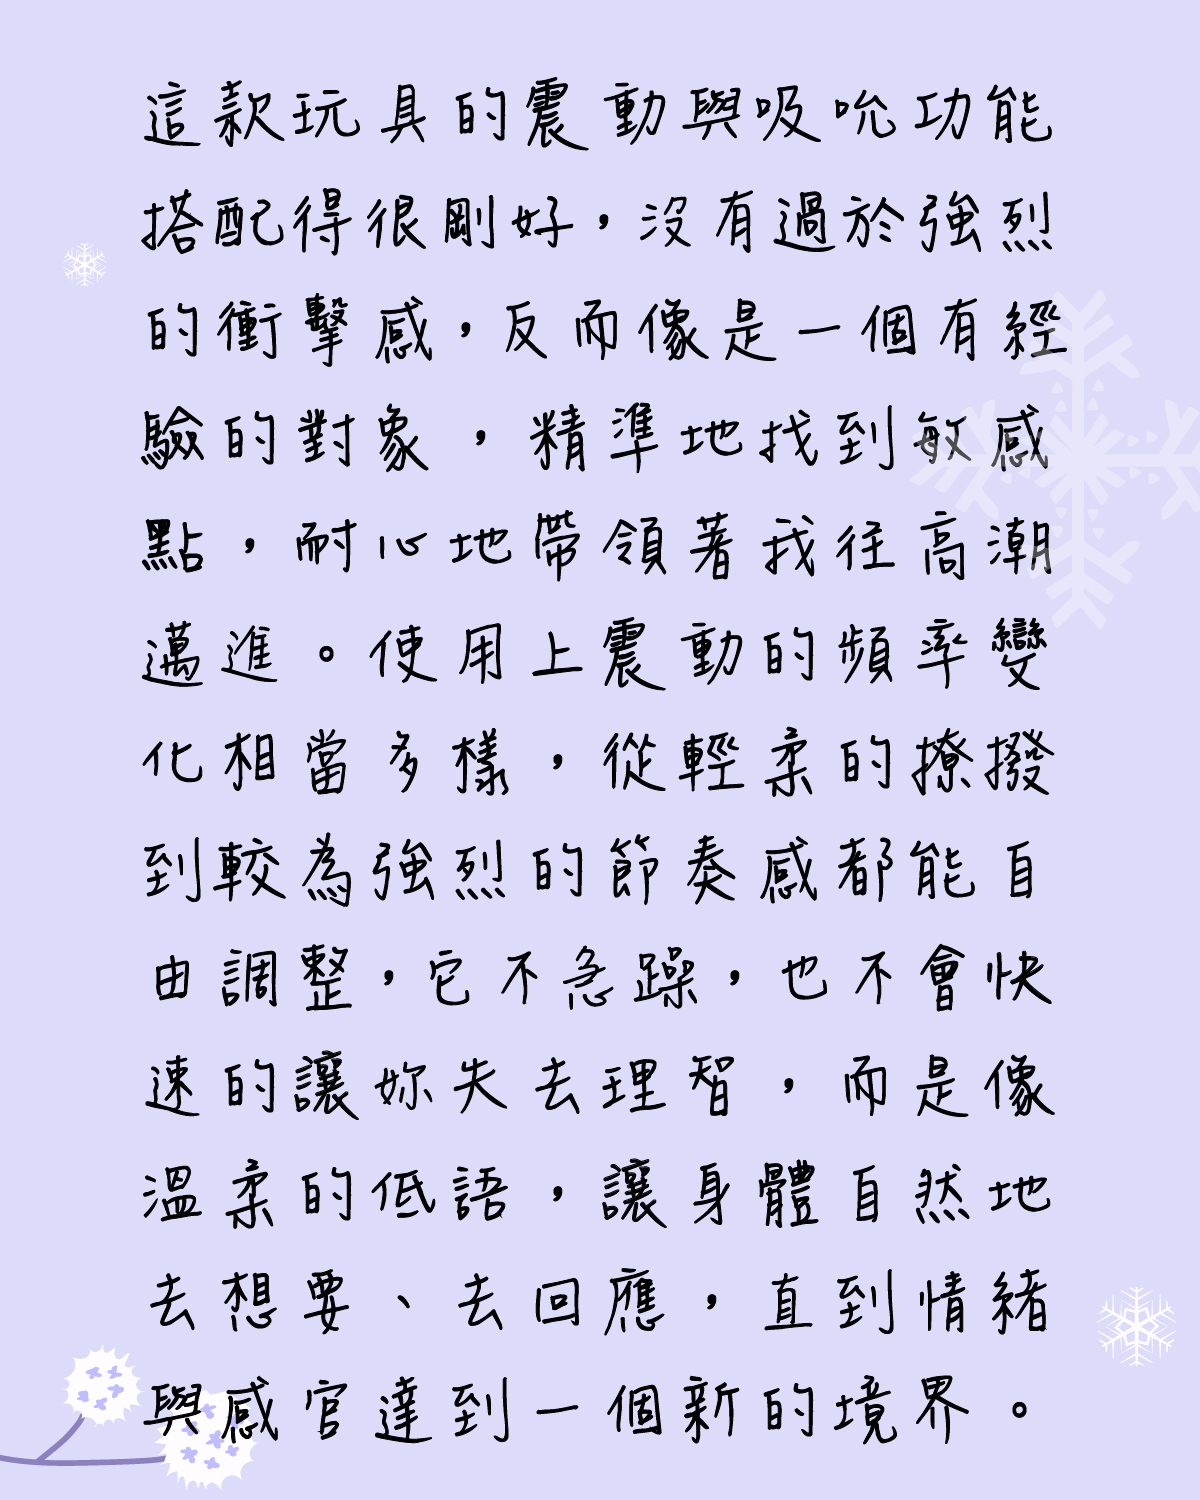 這款玩具的震動與吸吮功能
搭配得很剛好，沒有過於強烈
的衝擊感，反而像是一個有經
驗的對象，精準地找到敏感
點，耐心地帶領著我往高潮
邁進。使用上震動的頻率變
化相當多樣，從輕柔的撩撥
到較為強烈的節奏感都能自
由調整，它不急躁，也不會快
速的讓妳失去理智，而是像
溫柔的低語，讓身體自然地
去想要、去回應，直到情緒
與感官達到一個新的境界。